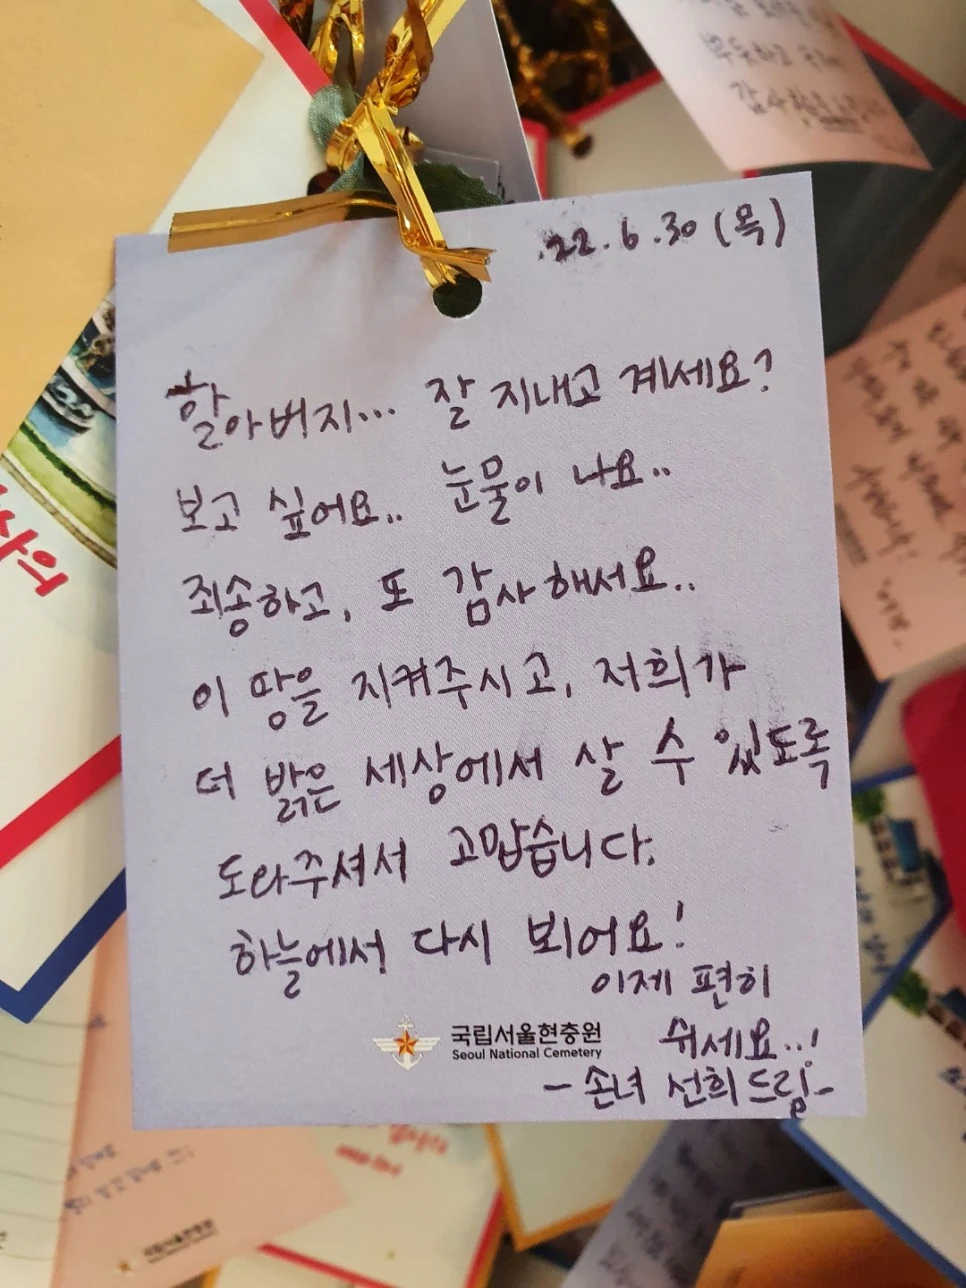 .22.6.30 (목)
할아버지... 잘 지내고 계세요?
보고 싶어요.. 눈물이 나요..
죄송하고, 또 감사해서요..
이 땅을 지켜주시고, 저희가
더 밝은 세상에서 살 수 있도록
도와주셔서 고맙습니다.
하늘에서 다시 뵈어요!
이제 편히
쉬세요..!
국립서울현충원
Seoul National Cemetery
- 손녀 선희 드림 -
감사
국립서울현충원